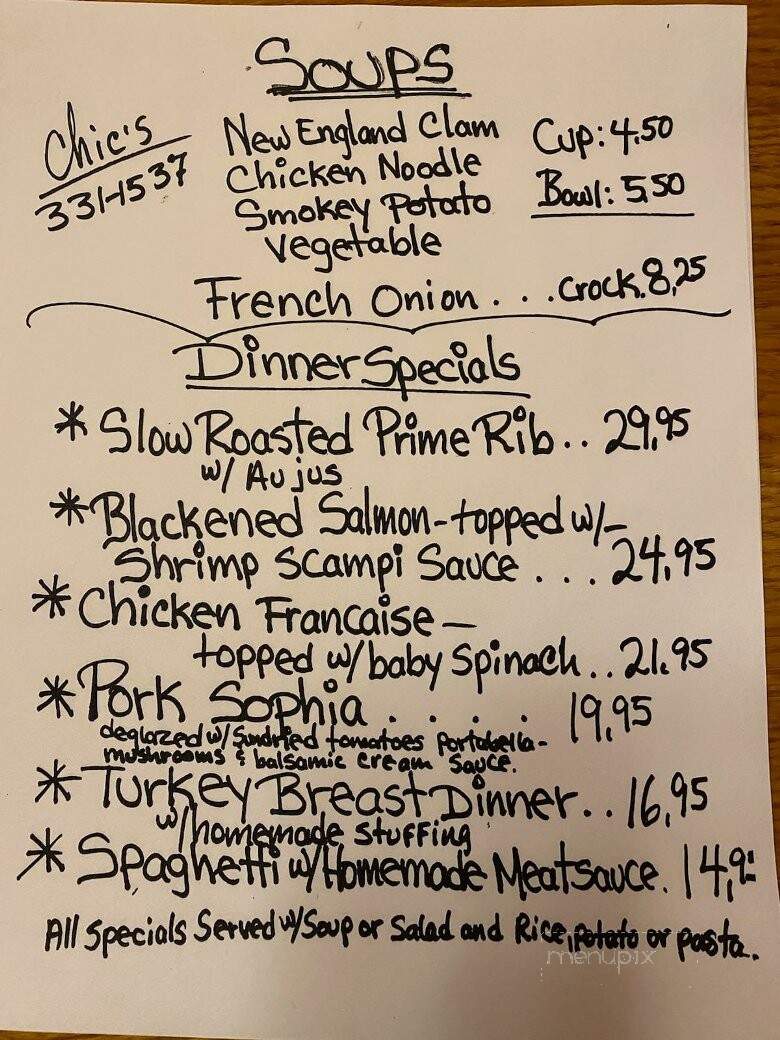 Soups
Chic's
331-1537
New England Clam
Chicken Noodle
Smokey Potato
Vegetable
Cup: 4.50
Bowl: 5.50
French Onion . . . Crock. 8.25
Dinner Specials
* Slow Roasted Prime Rib . . 29.95
w/ Au jus
* Blackened Salmon - topped w/-
Shrimp Scampi Sauce . . . 24.95
* Chicken Francaise -
topped w/ baby Spinach . . 21.95
* Pork Sophia . . . . . 19.95
deglazed w/ Sundried tomatoes Portabella-
mushrooms & balsamic cream sauce.
* Turkey Breast Dinner . . 16.95
w/ homemade stuffing
* Spaghetti w/ Homemade Meatsauce.
All Specials Served w/ Soup or Salad and Rice, potato or pasta.
menupix